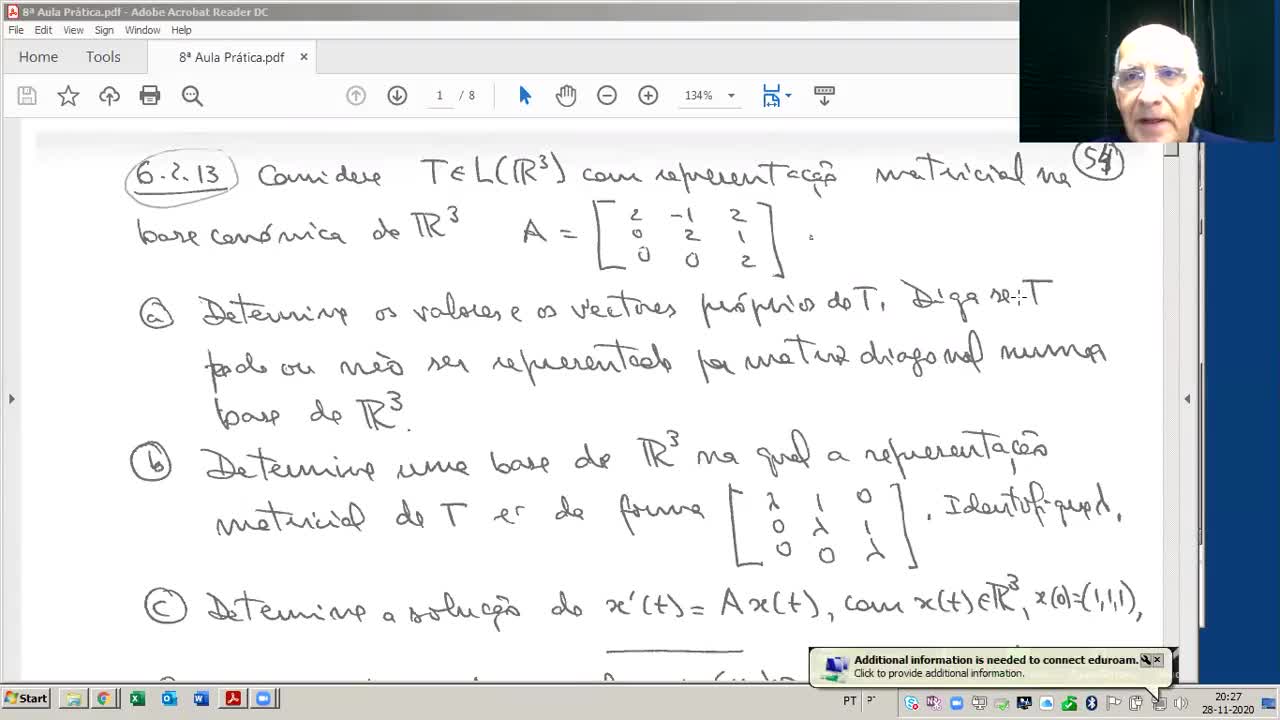 8ª Aula Prática.pdf - Adobe Acrobat Reader DC
File Edit View Sign Window Help
Home Tools 8ª Aula Prática.pdf ×
1 / 8 134%
6.2.13 Considere T ∈ L(ℝ³) com representação matricial na 54
base canónica de ℝ³ A = [2 -1 2
0 2 1
0 0 2].
a) Determine os valores e os vectores próprios de T. Diga se T
pode ou não ser representado por matriz diagonal numa
base de ℝ³.
b) Determine uma base de ℝ³ na qual a representação
matricial de T é da forma [λ 1 0
0 λ 1
0 0 λ]. Identifique λ.
c) Determine a solução de x'(t) = Ax(t), com x(t) ∈ ℝ³, x(0)=(1,1,1),
Additional information is needed to connect eduroam.
Click to provide additional information.
Start PT 20:27
28-11-2020